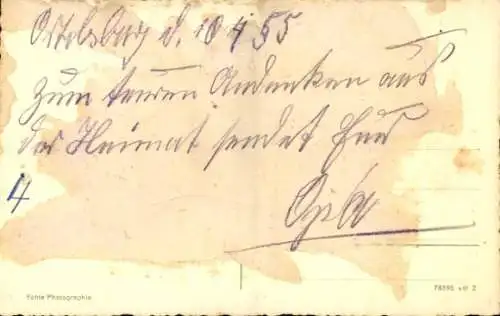 Ortelsburg d. 10 4 55
Zum teuren Andenken aus
der Heimat sendet Euer
4
Echte Photographie